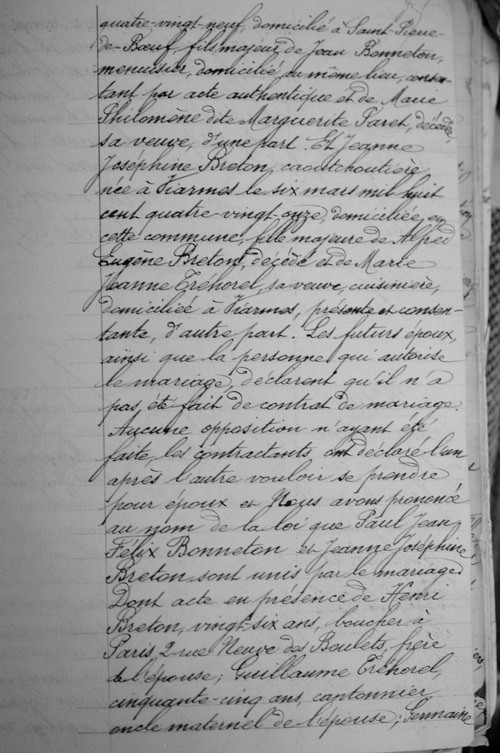 quatre-vingt-neuf, domicilié à Saint-Pierre-
de-Bœuf, fils majeur de Jean Bonneton,
menuisier, domicilié au même lieu, consen-
tant par acte authentique et de Marie
Philomène dite Marguerite Paret, décédée,
sa veuve, d'une part. Et Jeanne
Joséphine Breton, caoutchoutière
née à Viarmes le six mars mil huit
cent quatre-vingt-onze, domiciliée en
cette commune, fille majeure de Alfred
Eugène Breton, décédé et de Marie
Jeanne Tréhorel, sa veuve, cuisinière,
domiciliée à Viarmes, présente et consen-
tante, d'autre part. Les futurs époux,
ainsi que la personne qui autorise
le mariage, déclarent qu'il n'a
pas été fait de contrat de mariage.
Aucune opposition n'ayant été
faite, les contractants ont déclaré l'un
après l'autre vouloir se prendre
pour époux et Nous avons prononcé
au nom de la loi que Paul Jean
Félix Bonneton et Jeanne Joséphine
Breton sont unis par le mariage.
Dont acte en présence de Henri
Breton, vingt-six ans, boucher à
Paris, 2 rue Neuve des Boulets, frère
de l'épouse; Guillaume Tréhorel,
cinquante-cinq ans, cantonnier,
oncle maternel de l'épouse; Germaine